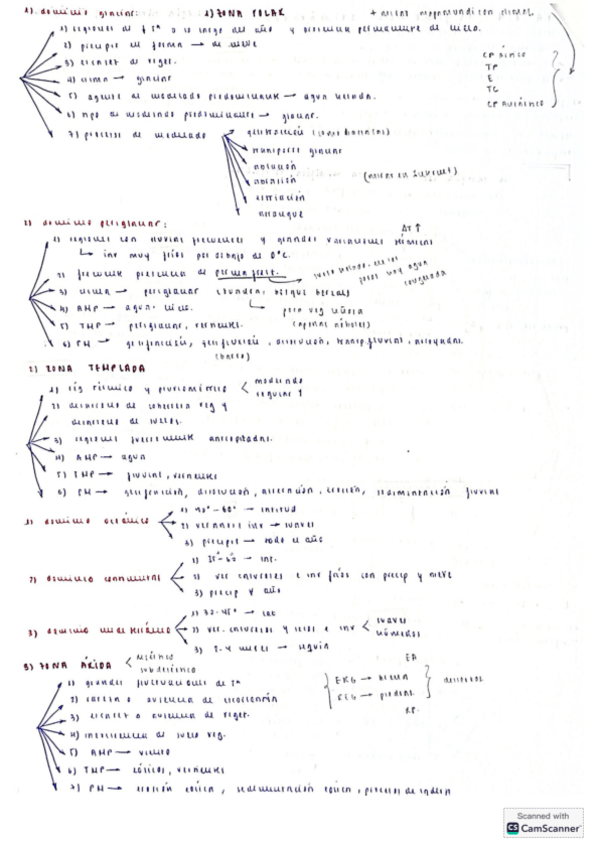 1) dominio glaciar: 1) ZONA POLAR
1) regiones de ↓ Tª a lo largo del año y presencia permanente de hielo.
2) precipit en forma → de nieve
3) escasez de veget.
4) clima → glaciar
5) agente de modelado predominante → agua helada.
6) tipo de modelado predominante → glaciar.
7) procesos de modelado
gelifracción
transporte glaciar
ablación
abrasión
CP ártico
TP
E
TC
CP antártico
2) dominio periglaciar:
1) regiones con lluvias frecuentes y grandes variaciones térmicas
↳ inv muy fríos por debajo de 0°C.
ΔT ↑
2) presencia de permafrost.
3) clima → periglaciar (tundra, bosque boreal)
poca veg leñosa
(apenas árboles)
4) AMP → agua-hielo.
5) TMP → periglaciar, vertientes.
6) PM → gelifracción, gelifluxión, disolución, transp. fluvial,
2) ZONA TEMPLADA
1) rég térmico y pluviométrico
2) desarrollo de cobertera veg y
desarrollo de suelos.
3) regiones fuertemente antropizadas.
4) AMP → agua
5) TMP → fluvial, vertientes
6) PM → gelifracción, disolución, alteración, erosión, sedimentación fluvial
1) dominio oceánico
1) 40°-60° → latitud
2) verano e inv → suaves
3) precipit → todo el año
2) dominio continental
1) 35°-60 → lat.
2) ver calurosos e inv fríos con precip y nieve
3) precip ∀ año
3) dominio mediterráneo
1) 30-45° → lat
2) ver. calurosos y secos e inv
suaves
húmedos
3) 2-4 meses → sequía
3) ZONA ÁRIDA
1) grandes fluctuaciones de Tª
2) escasa o ausencia de escorrentía
3) escasez o ausencia de veget.
4) inexistencia de suelo veg.
5) AMP → viento
6) TMP → eólicos, vertientes
7) PM → erosión eólica, sedimentación eólica, procesos de ladera
EA
ERG → arena
REG → piedras
desiertos
Scanned with
CS CamScanner